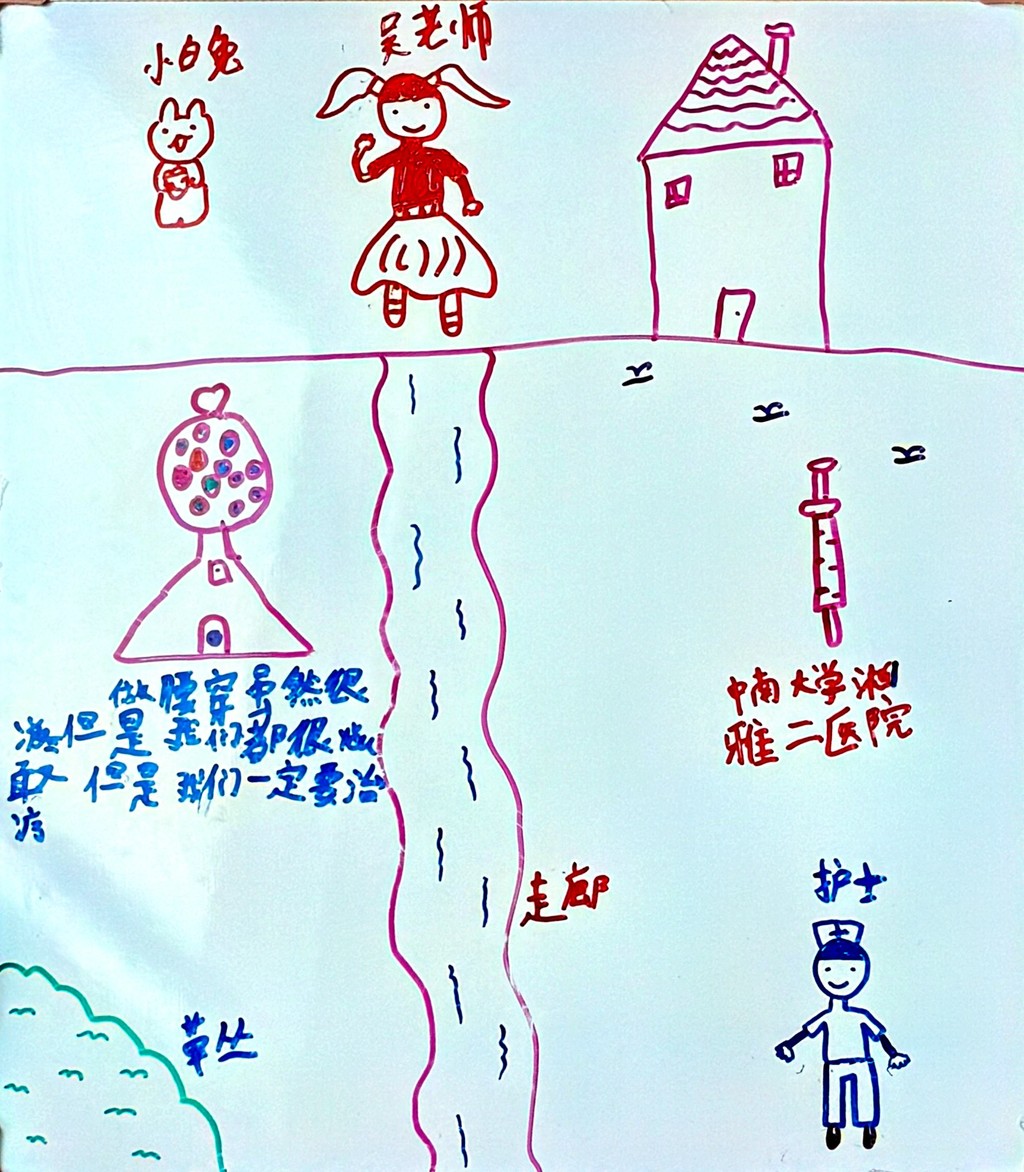 小白兔
吴老师
做腰穿虽然很
但是我们都很
但是我们一定要治
疗
中南大学湘
雅二医院
走廊
护士
草丛